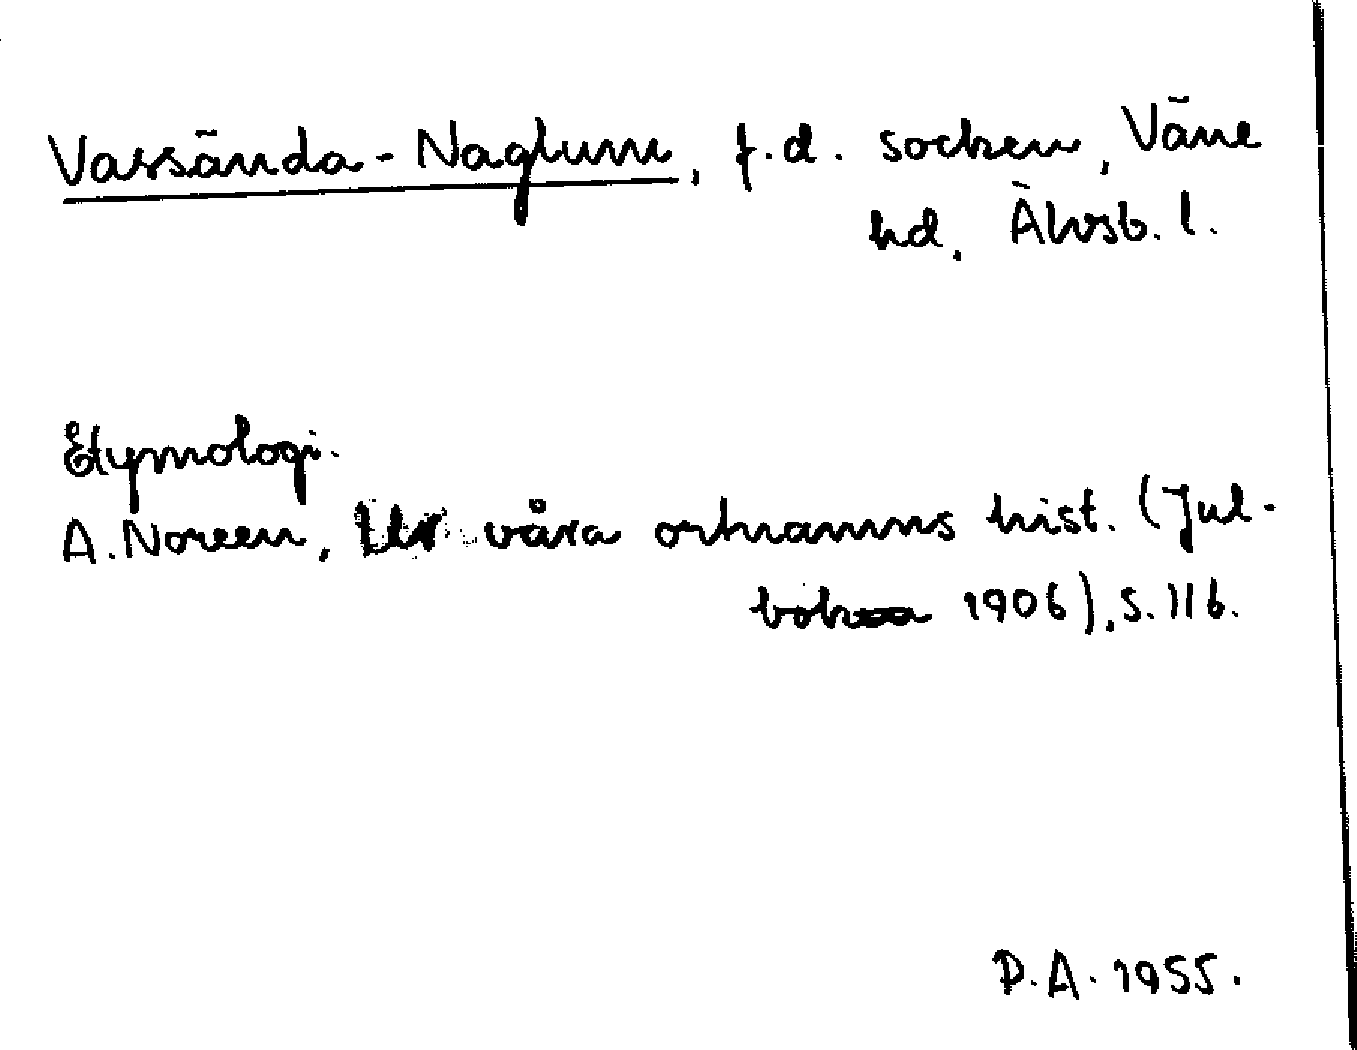 Vassända-Naglum, f.d. socken, Väne
hd, Älvsb. l.
Etymologi.
A. Noreen, Ur våra ortnamns hist. (Jul-
boken 1906), s. 116.
P.A. 1955.